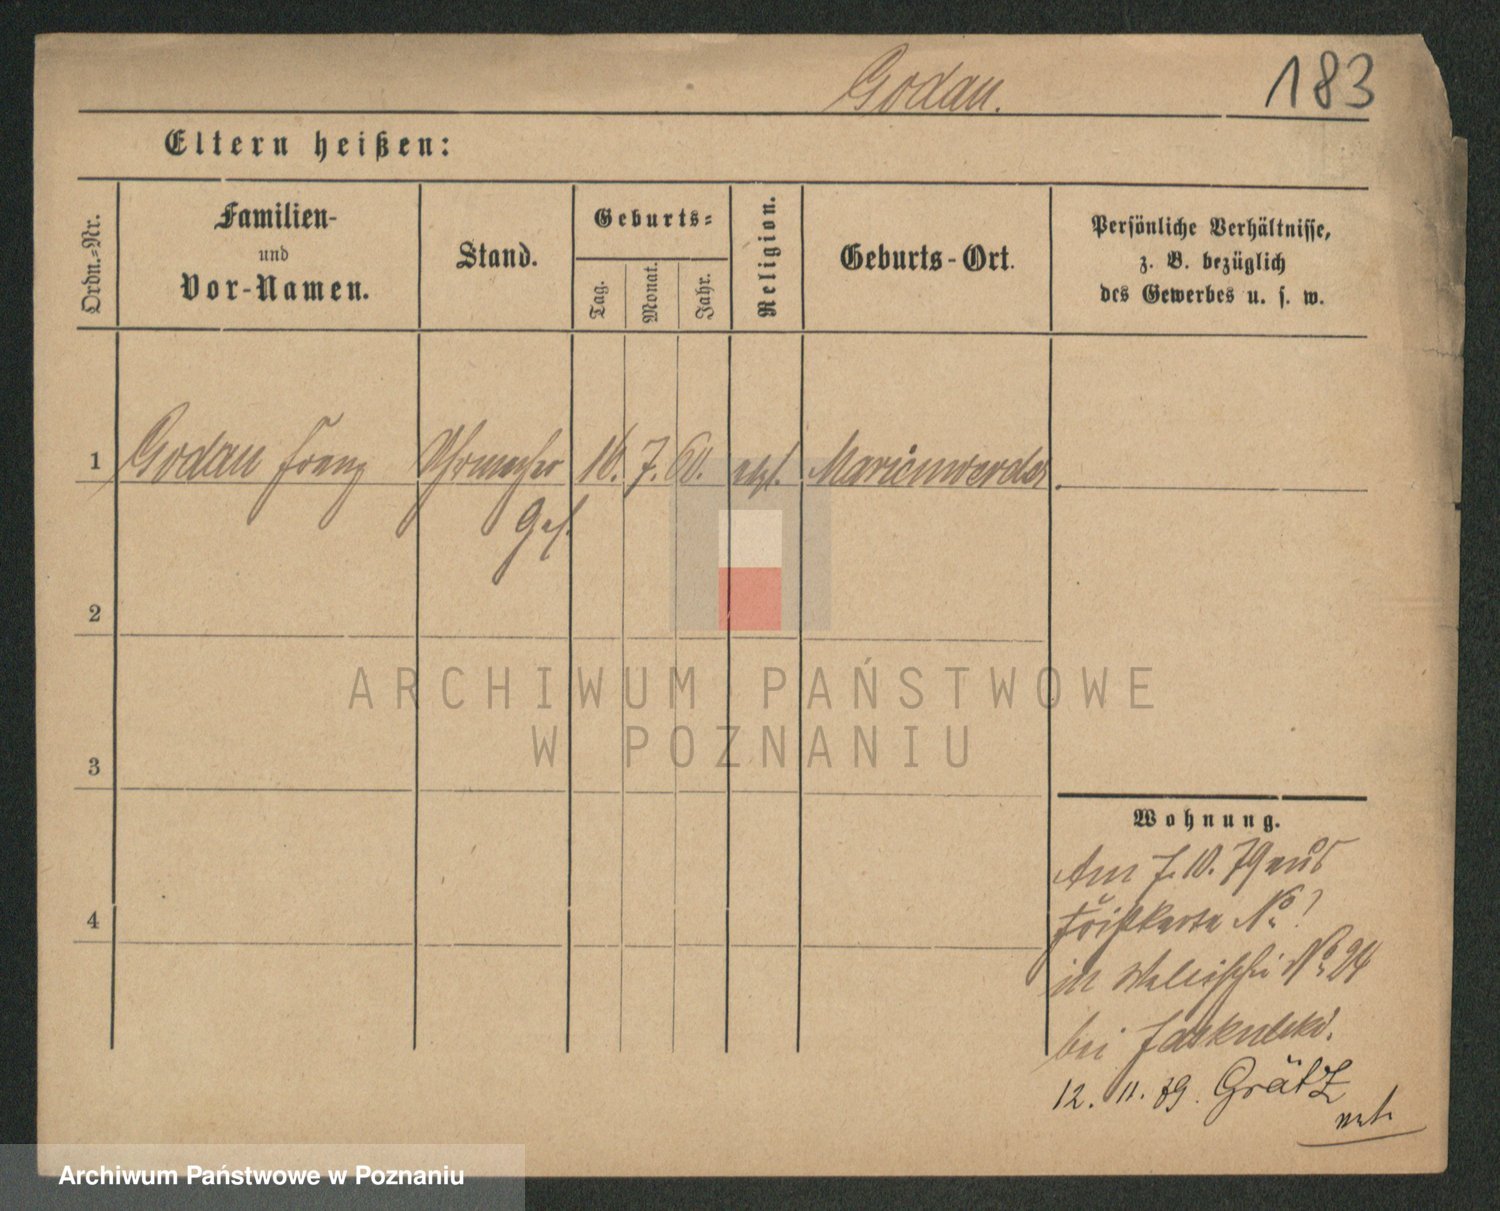 Godau.
183
Eltern heißen:
Ordn.=Nr.
Familien-
und
Vor-Namen.
Stand.
Geburts=
Tag.
Monat.
Jahr.
Religion.
Geburts-Ort.
Persönliche Verhältnisse,
z. B. bezüglich
des Gewerbes u. s. w.
1 Godau Franz Uhrmacher 16. 7. 60. Marienwerder.
Gef.
2
3
4
ARCHIWUM PAŃSTWOWE
W POZNANIU
Wohnung.
Am 7. 10. 79 aus
No
in Wallischei No 24
bei Jaskulski.
12. 11. 79. Grätz
Archiwum Państwowe w Poznaniu